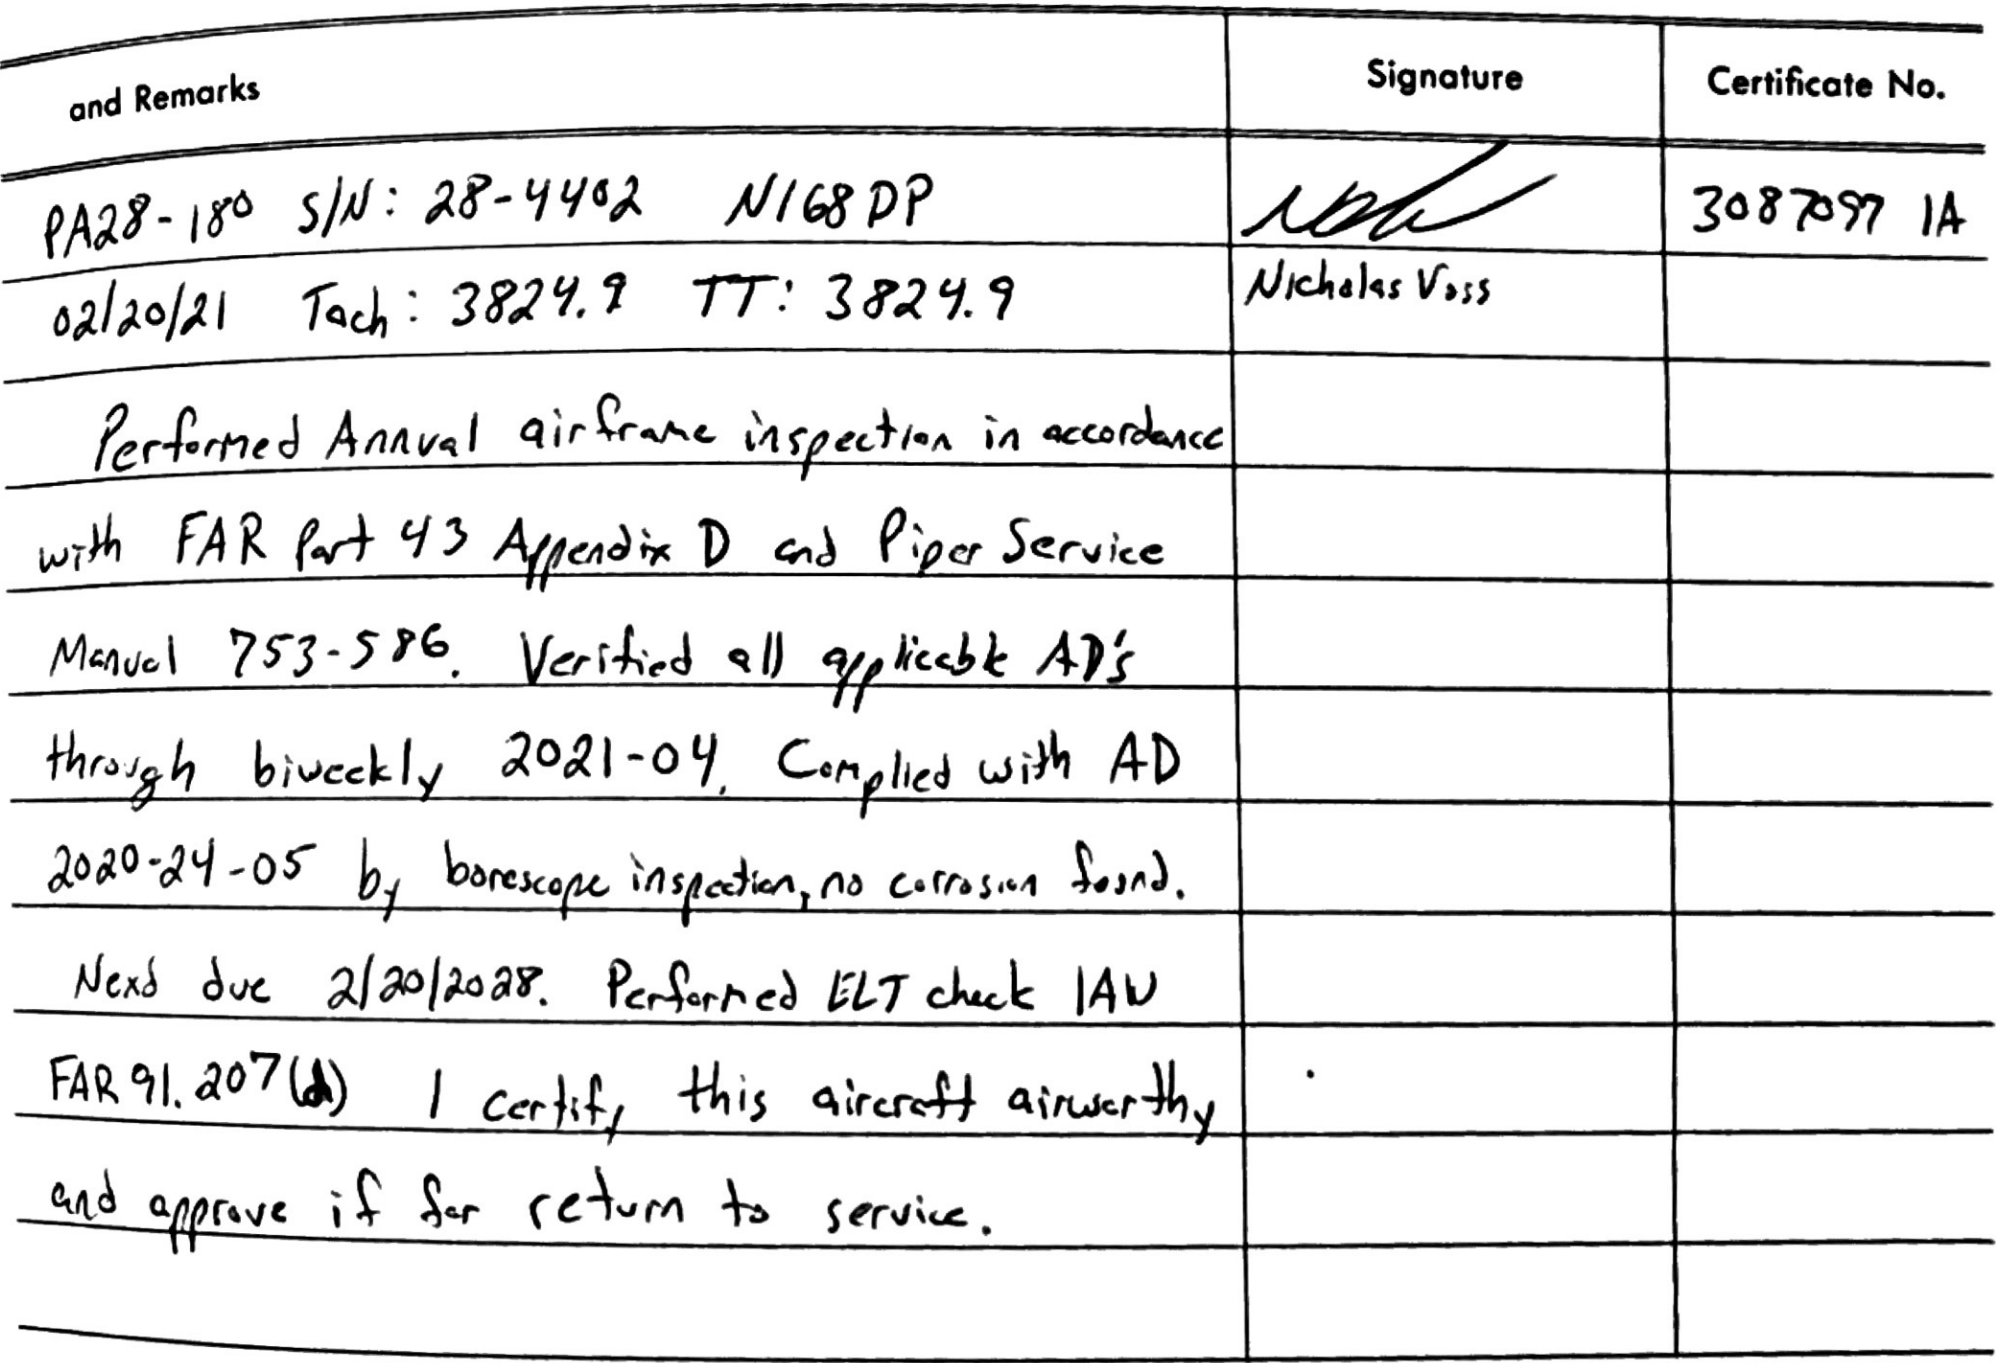 and Remarks Signature Certificate No.
PA28-180 S/N: 28-4402 N168DP 3087097 IA
02/20/21 Tach: 3824.9 TT: 3824.9 Nicholas Voss
Performed Annual airframe inspection in accordance
with FAR Part 43 Appendix D and Piper Service
Manual 753-586. Verified all applicable AD's
through biweekly 2021-04. Complied with AD
2020-24-05 by borescope inspection, no corrosion found.
Next due 2/20/2028. Performed ELT check IAW
FAR 91.207(d) I certify this aircraft airworthy
and approve it for return to service.